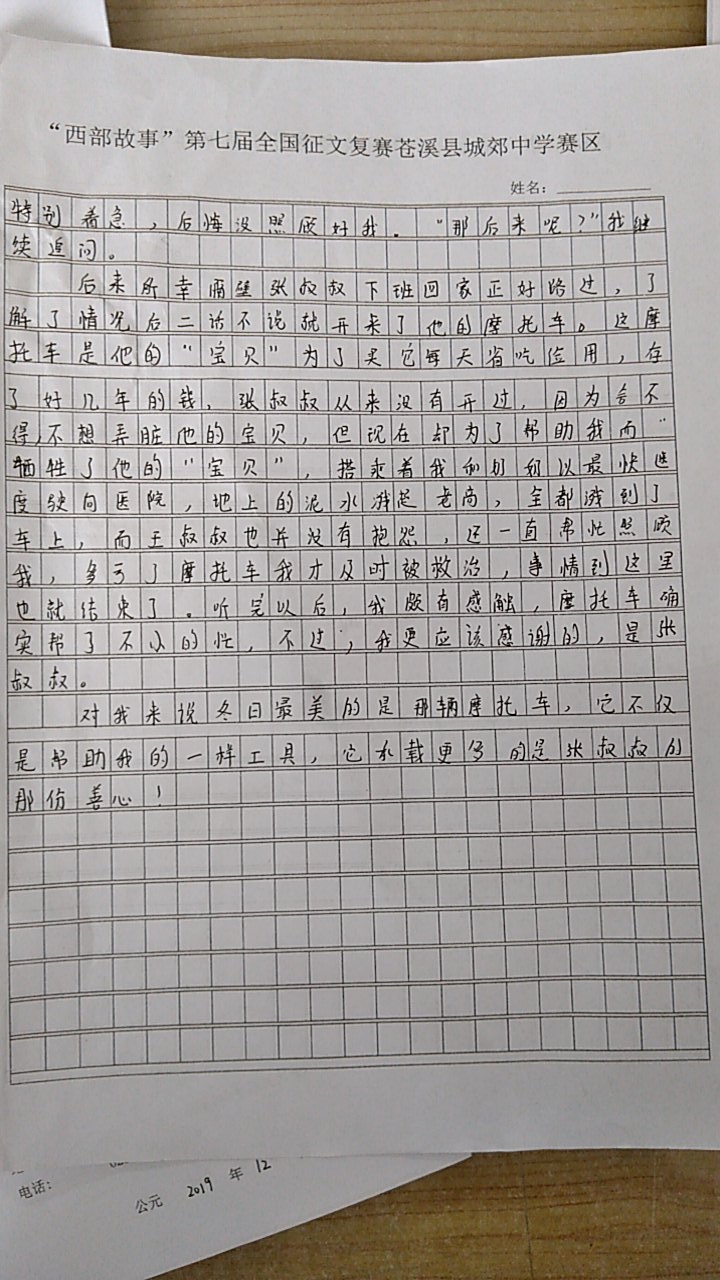 “西部故事”第七届全国征文复赛苍溪县城郊中学赛区
姓名：
特别着急，后悔没照顾好我。“那后来呢？”我继
续追问。
后来所幸隔壁张叔叔下班回家正好路过，了
解了情况后二话不说就开来了他的摩托车。这摩
托车是他的“宝贝”为了买它每天省吃俭用，存
了好几年的钱，张叔叔从来没有开过，因为舍不
得，不想弄脏他的宝贝，但现在却为了帮助我而“
牺牲了他的“宝贝”，搭乘着我和奶奶以最快速
度驶向医院，地上的泥水溅起老高，全都溅到了
车上，而王叔叔也并没有抱怨，还一直帮忙照顾
我，多亏了摩托车我才及时被救治，事情到这里
也就结束了。听完以后，我颇有感触，摩托车确
实帮了不小的忙，不过，我更应该感谢的，是张
叔叔。
对我来说冬日最美的是那辆摩托车，它不仅
是帮助我的一样工具，它承载更多的是张叔叔的
那份善心！
电话：
公元 2019 年 12